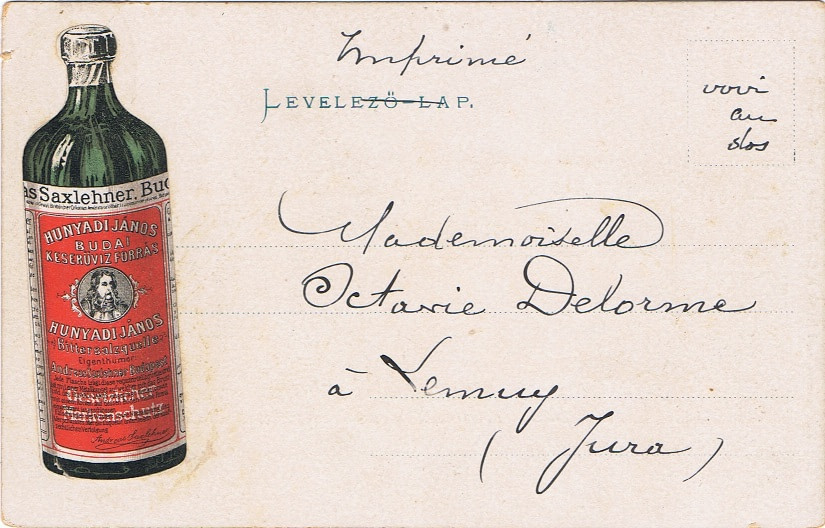 Imprimé
LEVELEZŐ-LAP.
vovi
au
dos
as Saxlehner, Bud
HUNYADI JÁNOS
BUDAI
KESERÜVIZ FORRÁS
HUNYADI JÁNOS
Bittersalzquelle
Eigenthümer
Andreas Saxlehner Budapest
Gesetzlicher
Markenschutz
Mademoiselle
Octavie Delorme
à Lemuy
(Jura)